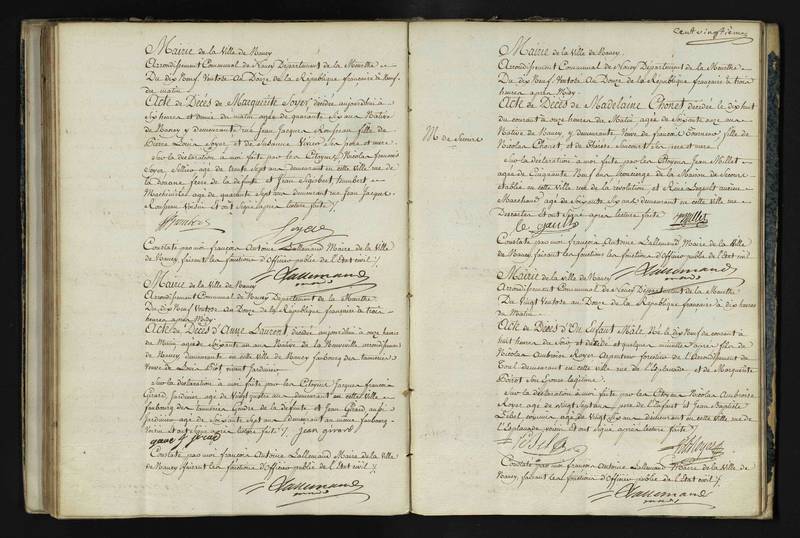 Mairie de la Ville de Nancy
Arrondissement Communal de Nancy Département de la Meurthe
Du dix Neuf Ventose An Douze de la République française à Neuf
du matin
Acte de Décès de Marguerite Soyer décédée aujourd'hui à
Six heures et demie du matin agée de quarante Six ans Native
de Nancy y demeurante rue Jean Jacques Rousseau fille de
Pierre Louis Soyer et de Susanne Vivier Ses père et mere
Sur la déclaration à moi faite par les Citoyens Nicolas françois
Soyer, agé de trente Sept ans demeurant en cette Ville rue de
la douane frere de la défunte et Jean Sigisbert humbert
agé de quarante Sept ans demeurant rue Jean Jacques
Rousseau Voisin et ont Signé après lecture faite
Soyer
Constaté par moi françois Antoine Lallemand Maire de la Ville
de Nancy faisant les fonctions d'Officier public de l'Etat civil
Lallemand
Mairie de la Ville de Nancy
Arrondissement Communal de Nancy Département de la Meurthe
Du dix Neuf Ventose An Douze de la République française de trois
heures après Midy
Acte de Décès d'Anne Laurent, décédée aujourd'hui à onze heures
du Matin agée de Soixante un ans Native de la Neuveville arrondissement
de Nancy demeurante en cette Ville de Nancy faubourg des tanneries
Veuve de Louis vivant Jardinier
Sur la déclaration à moi faite par les Citoyens Jacques françois
Girard Jardinier agé de Vingt quatre ans demeurant en cette Ville
faubourg des tanneries Gendre de la défunte et Jean Girard aussi
Jardinier agé de Soixante Sept ans demeurant au même faubourg
Voisin et ont signé après lecture faite Jean girard
girard
Constaté par moi françois Antoine Lallemand Maire de la Ville
de Nancy faisant les fonctions d'Officier public de l'Etat civil
Lallemand
Cent vingtième
Mairie de la Ville de Nancy
Arrondissement Communal de Nancy Département de la Meurthe
Du dix Neuf Ventose An Douze de la République française à trois
heures après Midy
Acte de Décès de Madelaine Choret décédée le dix huit
du courant à onze heures du Matin agée de Soixante onze ans
Native de Nancy y demeurante Veuve de francois fille de
Nicolas Choret et de Thérèse Ses père et mere
M de Secours
Sur la déclaration à moi faite par les Citoyens Jean Millet
agé de Cinquante Neuf ans Concierge de la Maison de Secours
établie en cette Ville rue de la révolution et René ancien
Marchand agé de Soixante Six ans demeurant en cette Ville rue
Descartes et ont signé après lecture faite Millet
Constaté par moi françois Antoine Lallemand Maire de la Ville
de Nancy faisant les fonctions d'Officier public de l'Etat civil
Lallemand
Mairie de la Ville de Nancy
Arrondissement Communal de Nancy Département de la Meurthe
Du Vingt Ventose An Douze de la République française à dix heures
du Matin
Acte de Décès d'Un Enfant Mâle Né le dix Neuf du courant à
huit heures du Soir et décédé quelques minutes après fils de
Nicolas Ambroise Royer Arpenteur forestier de l'Arrondissement de
Toul demeurant en cette Ville rue de l'Esplanade et de Marguerite
Son Epouse légitime
Sur la déclaration à moi faite par les Citoyens Nicolas Ambroise
Royer agé de trente Sept ans, pere de l'Enfant et Jean Baptiste
agé de Vingt ans demeurant en cette Ville rue de
l'Esplanade voisin Et ont signé après lecture faite
Royer
Constaté par moi françois Antoine Lallemand Maire de la Ville de
Nancy, faisant les fonctions d'Officier public de l'Etat civil
Lallemand